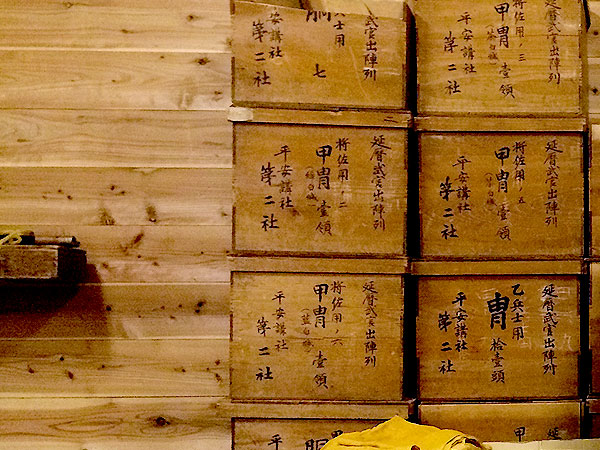 延暦武官出陣列
将佐用ノ三
甲冑壹領
平安講社
第二社
士用
胴
七
平安講社
第二社
延暦武官出陣列
将佐用ノ五
甲冑壹領
平安講社
第二社
延暦武官出陣列
将佐用ノ二
甲冑壹領
平安講社
第二社
延暦武官出陣列
乙兵士用
冑拾壹頭
平安講社
第二社
延暦武官出陣列
将佐用ノ六
甲冑壹領
平安講社
第二社
延
甲
延
甲
胴
平
第